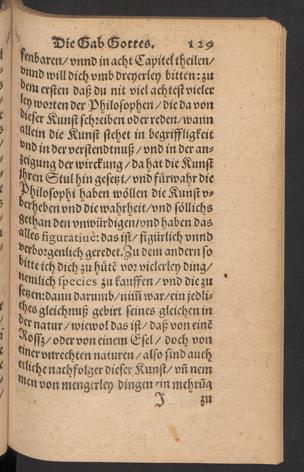 Die Gab Gottes. 129
kenbaren/ vnnd in acht Capitel theilen/
vnnd will dich vmb dreyerley bitten: zu
dem ersten daß du nit viel achtest vieler
ley worten der Philosophen/ die da von
dieser Kunst schreiben oder reden/ wann
allein die Kunst stehet in begriffligkeit
vnd in der verstendtnuß/ vnd in der an-
zeigung der wirckung/ da hat die Kunst
jhren Stul hin gesetzt/ vnd fürwahr die
Philosophi haben wöllen die Kunst v-
berheben vnd die wahrheit/ vnd söllichs
gethan den vnwürdigen/ vnd haben das
alles figuratiuè: das ist/ figürlich vnnd
verborgenlich geredet. Zu dem andern so
bitte ich dich zu hütē vor vielerley ding/
nemlich species zu kauffen/ vnd die zu
setzen: dann darumb/ nim̄ war/ ein jedli-
ches gleichnuß gebirt seines gleichen in
der natur/ wiewol das ist/ daß von einē
Rossz/ oder von einem Esel/ doch von
einer vnrechten naturen/ also sind auch
etliche nachfolger dieser Kunst/ vn̄ nem
men von mengerley dingen ein mehrūg
J zu